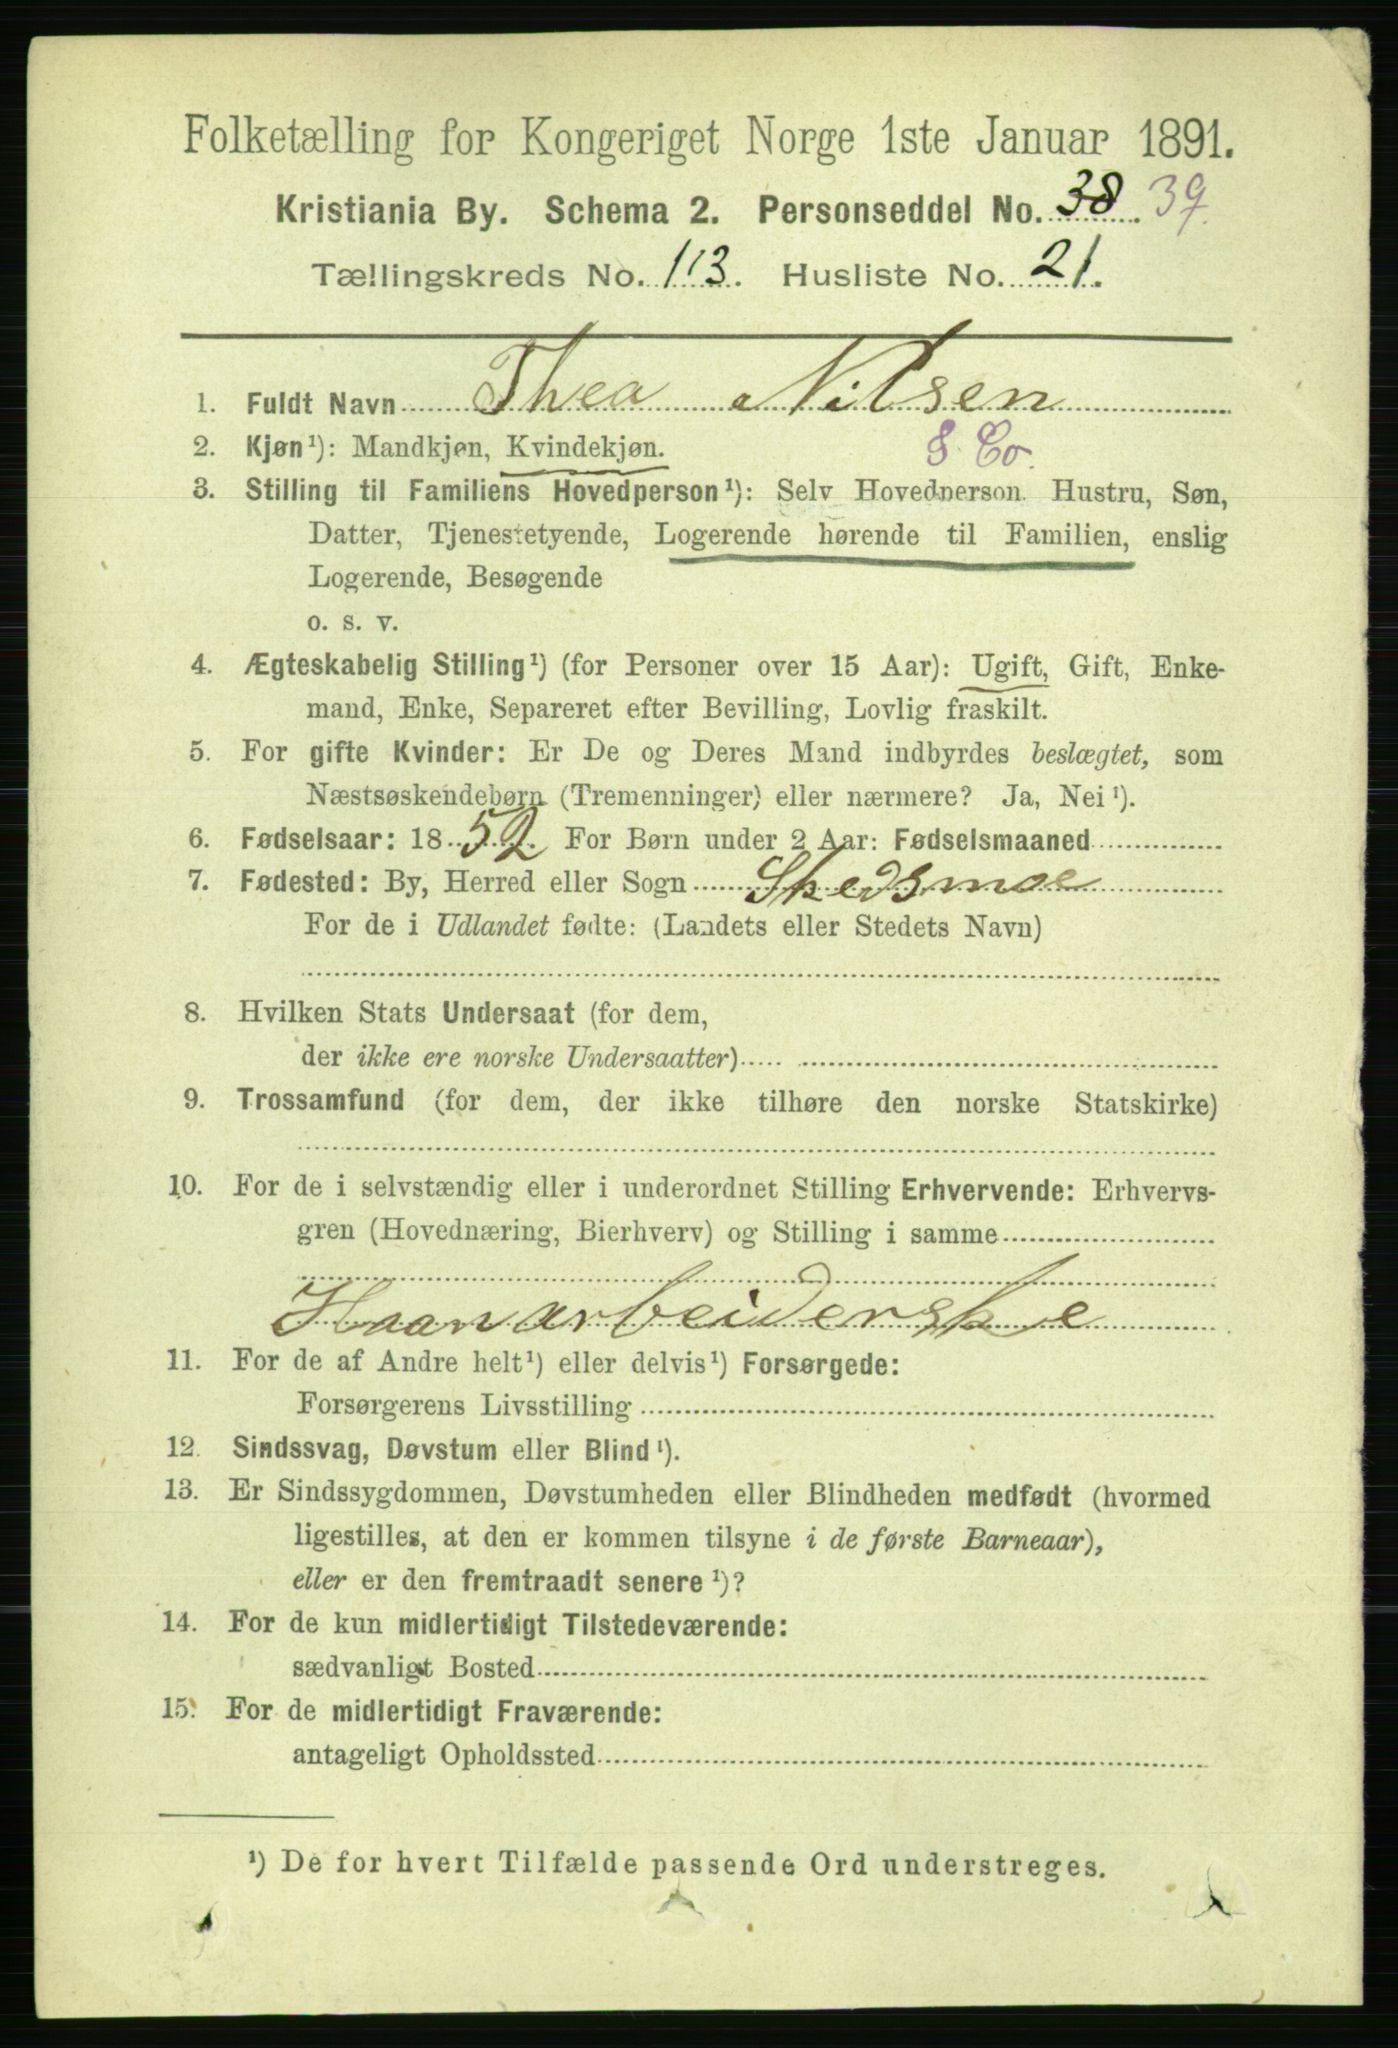 Folketælling for Kongeriget Norge 1ste Januar 1891.
Kristiania By. Schema 2. Personseddel No. 38. 39.
Tællingskreds No. 113. Husliste No. 21.
1. Fuldt Navn Thea Nilsen
2. Kjøn¹): Mandkjøn, Kvindekjøn.
3. Stilling til Familiens Hovedperson¹): Selv Hovedperson. Hustru, Søn,
Datter, Tjenestetyende, Logerende hørende til Familien, enslig
Logerende, Besøgende
o. s. v.
4. Ægteskabelig Stilling¹) (for Personer over 15 Aar): Ugift, Gift, Enke-
mand, Enke, Separeret efter Bevilling, Lovlig fraskilt.
5. For gifte Kvinder: Er De og Deres Mand indbyrdes beslægtet, som
Næstsøskendebørn (Tremenninger) eller nærmere? Ja, Nei¹).
6. Fødselsaar: 1852. For Børn under 2 Aar: Fødselsmaaned
7. Fødested: By, Herred eller Sogn Skedsmoe
For de i Udlandet fødte: (Landets eller Stedets Navn)
8. Hvilken Stats Undersaat (for dem,
der ikke ere norske Undersaatter)
9. Trossamfund (for dem, der ikke tilhøre den norske Statskirke)
10. For de i selvstændig eller i underordnet Stilling Erhvervende: Erhvervs-
gren (Hovednæring, Bierhverv) og Stilling i samme
Haanarbeiderske
11. For de af Andre helt¹) eller delvis¹) Forsørgede:
Forsørgerens Livsstilling
12. Sindssvag, Døvstum eller Blind¹).
13. Er Sindssygdommen, Døvstumheden eller Blindheden medfødt (hvormed
ligestilles, at den er kommen tilsyne i de første Barneaar),
eller er den fremtraadt senere¹)?
14. For de kun midlertidigt Tilstedeværende:
sædvanligt Bosted
15. For de midlertidigt Fraværende:
antageligt Opholdssted
¹) De for hvert Tilfælde passende Ord understreges.